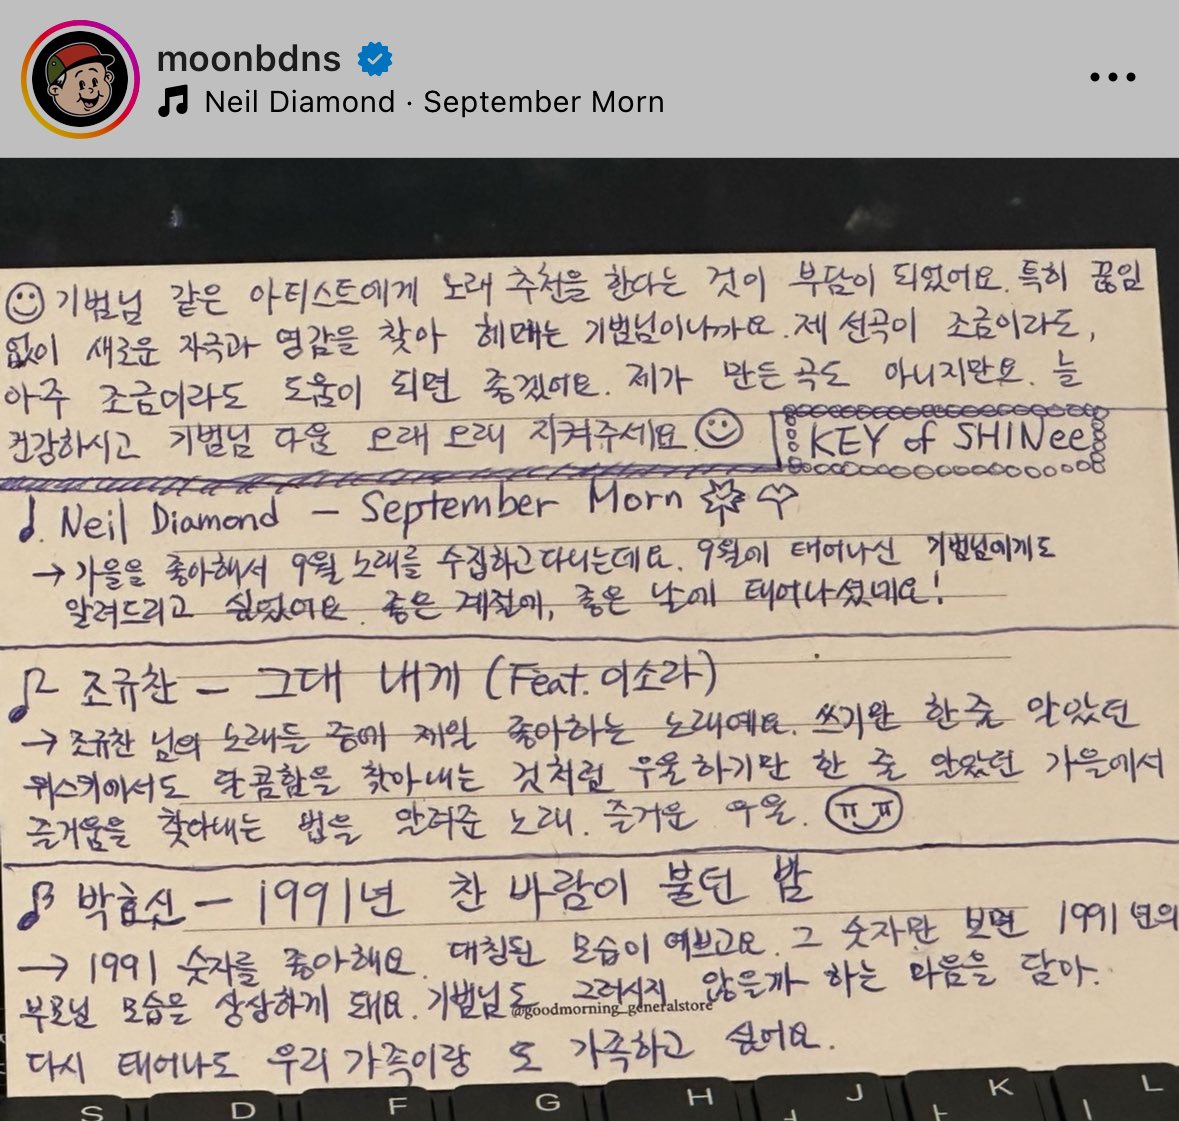 moonbdns
Neil Diamond · September Morn
기범님 같은 아티스트에게 노래 추천을 한다는 것이 부담이 되었어요. 특히 끊임
없이 새로운 자극과 영감을 찾아 헤매는 기범님이니까요. 제 선곡이 조금이라도,
아주 조금이라도 도움이 되면 좋겠어요. 제가 만든 곡도 아니지만요. 늘
건강하시고 기범님 다움 오래 오래 지켜주세요.
KEY of SHINee
Neil Diamond – September Morn
→ 가을을 좋아해서 9월 노래를 수집하고 다니는데요. 9월에 태어나신 기범님에게도
알려드리고 싶었어요. 좋은 계절에, 좋은 날에 태어나셨네요!
조규찬 – 그대 내게 (Feat. 이소라)
→ 조규찬 님의 노래들 중에 제일 좋아하는 노래예요. 쓰기만 한 줄 알았던
위스키에서도 달콤함을 찾아내는 것처럼 우울하기만 한 줄 알았던 가을에서
즐거움을 찾아내는 법을 알려준 노래. 즐거운 우울. ㅠㅠ
박효신 – 1991년 찬 바람이 불던 밤
→ 1991 숫자를 좋아해요. 대칭된 모습이 예쁘고요. 그 숫자만 보면 1991년의
부모님 모습을 상상하게 돼요. 기범님도 그러시지 않을까 하는 마음을 담아.
@goodmorning_generalstore
다시 태어나도 우리 가족이랑 또 가족하고 싶어요.
S D F G H J K L